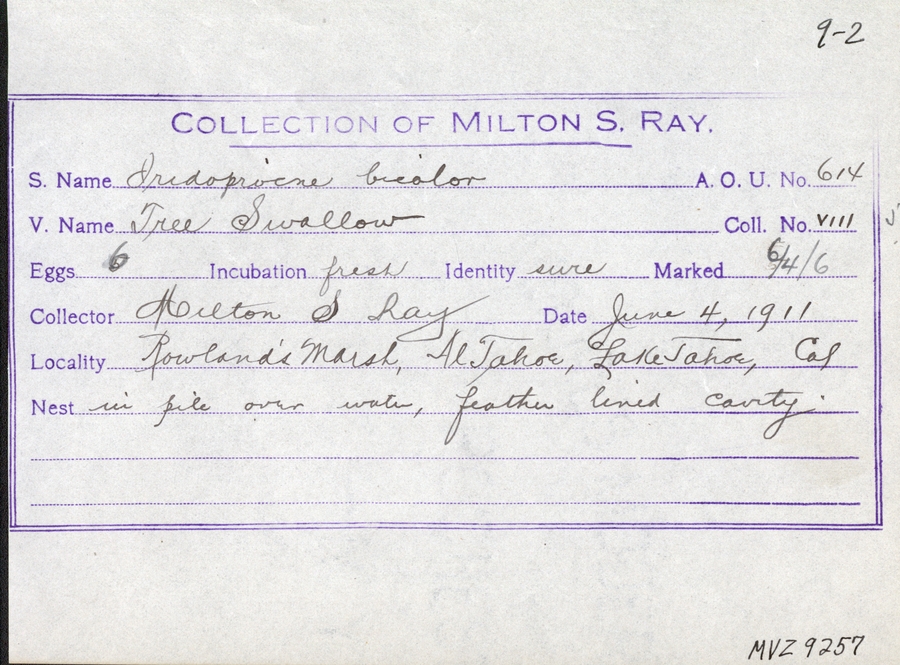 9-2
COLLECTION OF MILTON S. RAY.
S. Name Iridoprocne bicolor A. O. U. No. 614
V. Name Tree Swallow Coll. No. VIII
Eggs 6 Incubation fresh Identity sure Marked 6/4/6
Collector Milton S Ray Date June 4, 1911
Locality Rowland's Marsh, Al Tahoe, Lake Tahoe, Cal
Nest in pile over water, feather lined cavity.
MVZ 9257